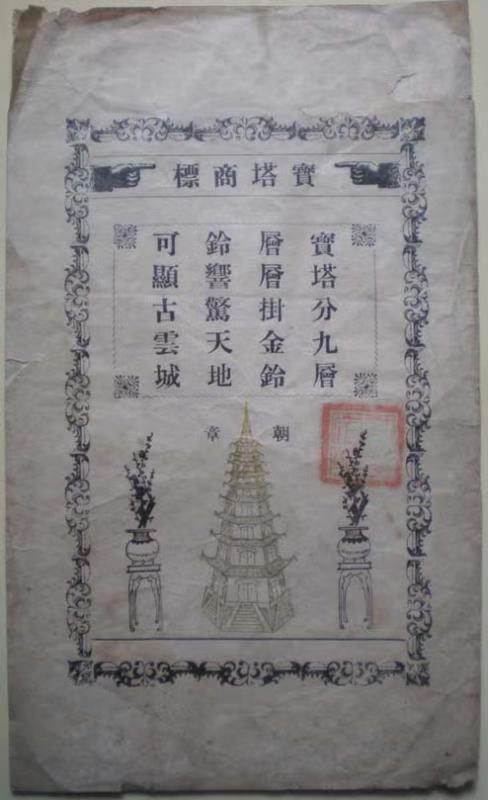 寶塔商標
寶塔分九層
層層掛金鈴
鈴響驚天地
可顯古雲城
朝章